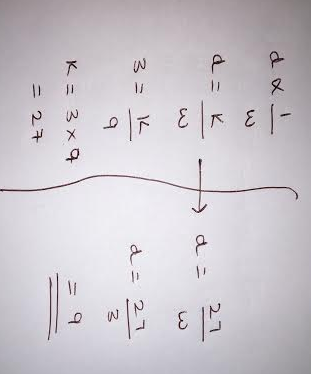 d α 1/m
d = K/m
3 = K/9
K = 3 × 9
= 27
d = 27/m
d = 27/3
= 9